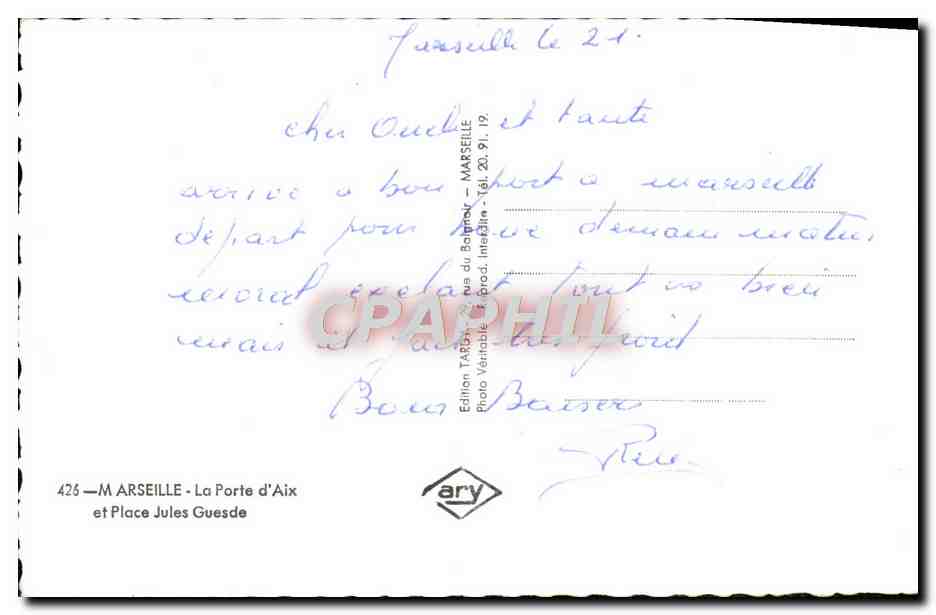 Marseille le 21.
cher Oncle et tante
arrive a bon port a marseille
départ pour demain matin
moral exelant tout va bien
mais il fait tres froid
Bons Baisers
René
Edition TARDY - rue du Baignoir — MARSEILLE
Photo Véritable - Reprod. Interdite - Tél. 20. 91. 19.
CPAPHIL
426 — M ARSEILLE - La Porte d'Aix
et Place Jules Guesde
ary